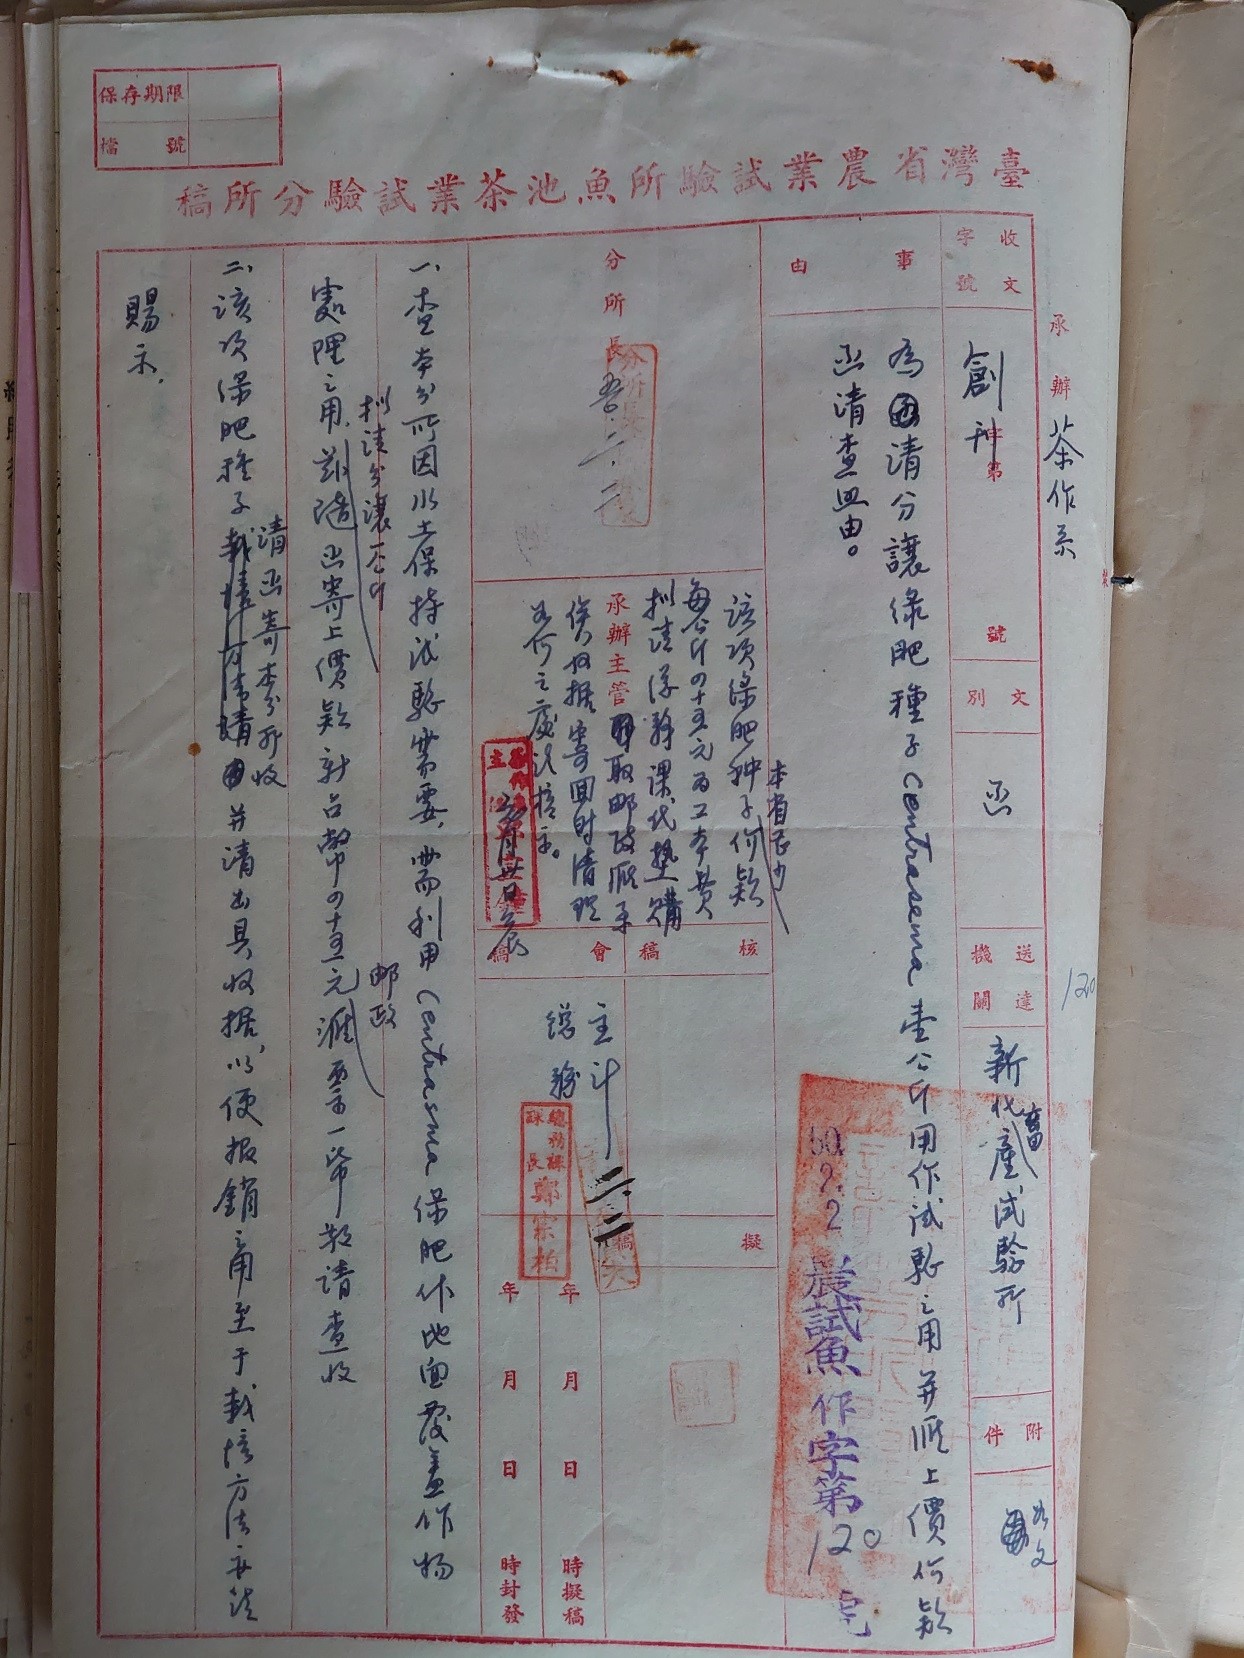 保存期限
檔號
臺灣省農業試驗所魚池茶業試驗分所稿
承辦 茶作系
收文
字號
創刊
字第
號
文別
函
送達機關
新化畜產試驗所
附件
如文
120
事由
為函請分讓綠肥種子Centrasema壹公斤用作試驗之用並匯上價何款
函請查照由。
50.2.2
農試魚作字第120號
分所長
該項綠肥種子價款
本省至少
每公斤四十五元為工本費
擬請總務課代墊購
承辦主管
取郵政匯票
俟收據寄回時清理
如何之處請核示。
核稿
會稿
主計
總務
總務課課長鄭宗柏
擬稿
年月日時擬稿
年月日時封發
一、查本分所因水土保持試驗需要,需利用Centrasma綠肥作地面覆蓋作物
處理之用,茲隨函寄上價款新台幣四十五元匯票一帋敬請查收
擬請分讓一公斤
郵政
二、該項綠肥種子
請函寄本分所收
并請出具收据,以便报銷之用至于栽培方法亦請
賜示.